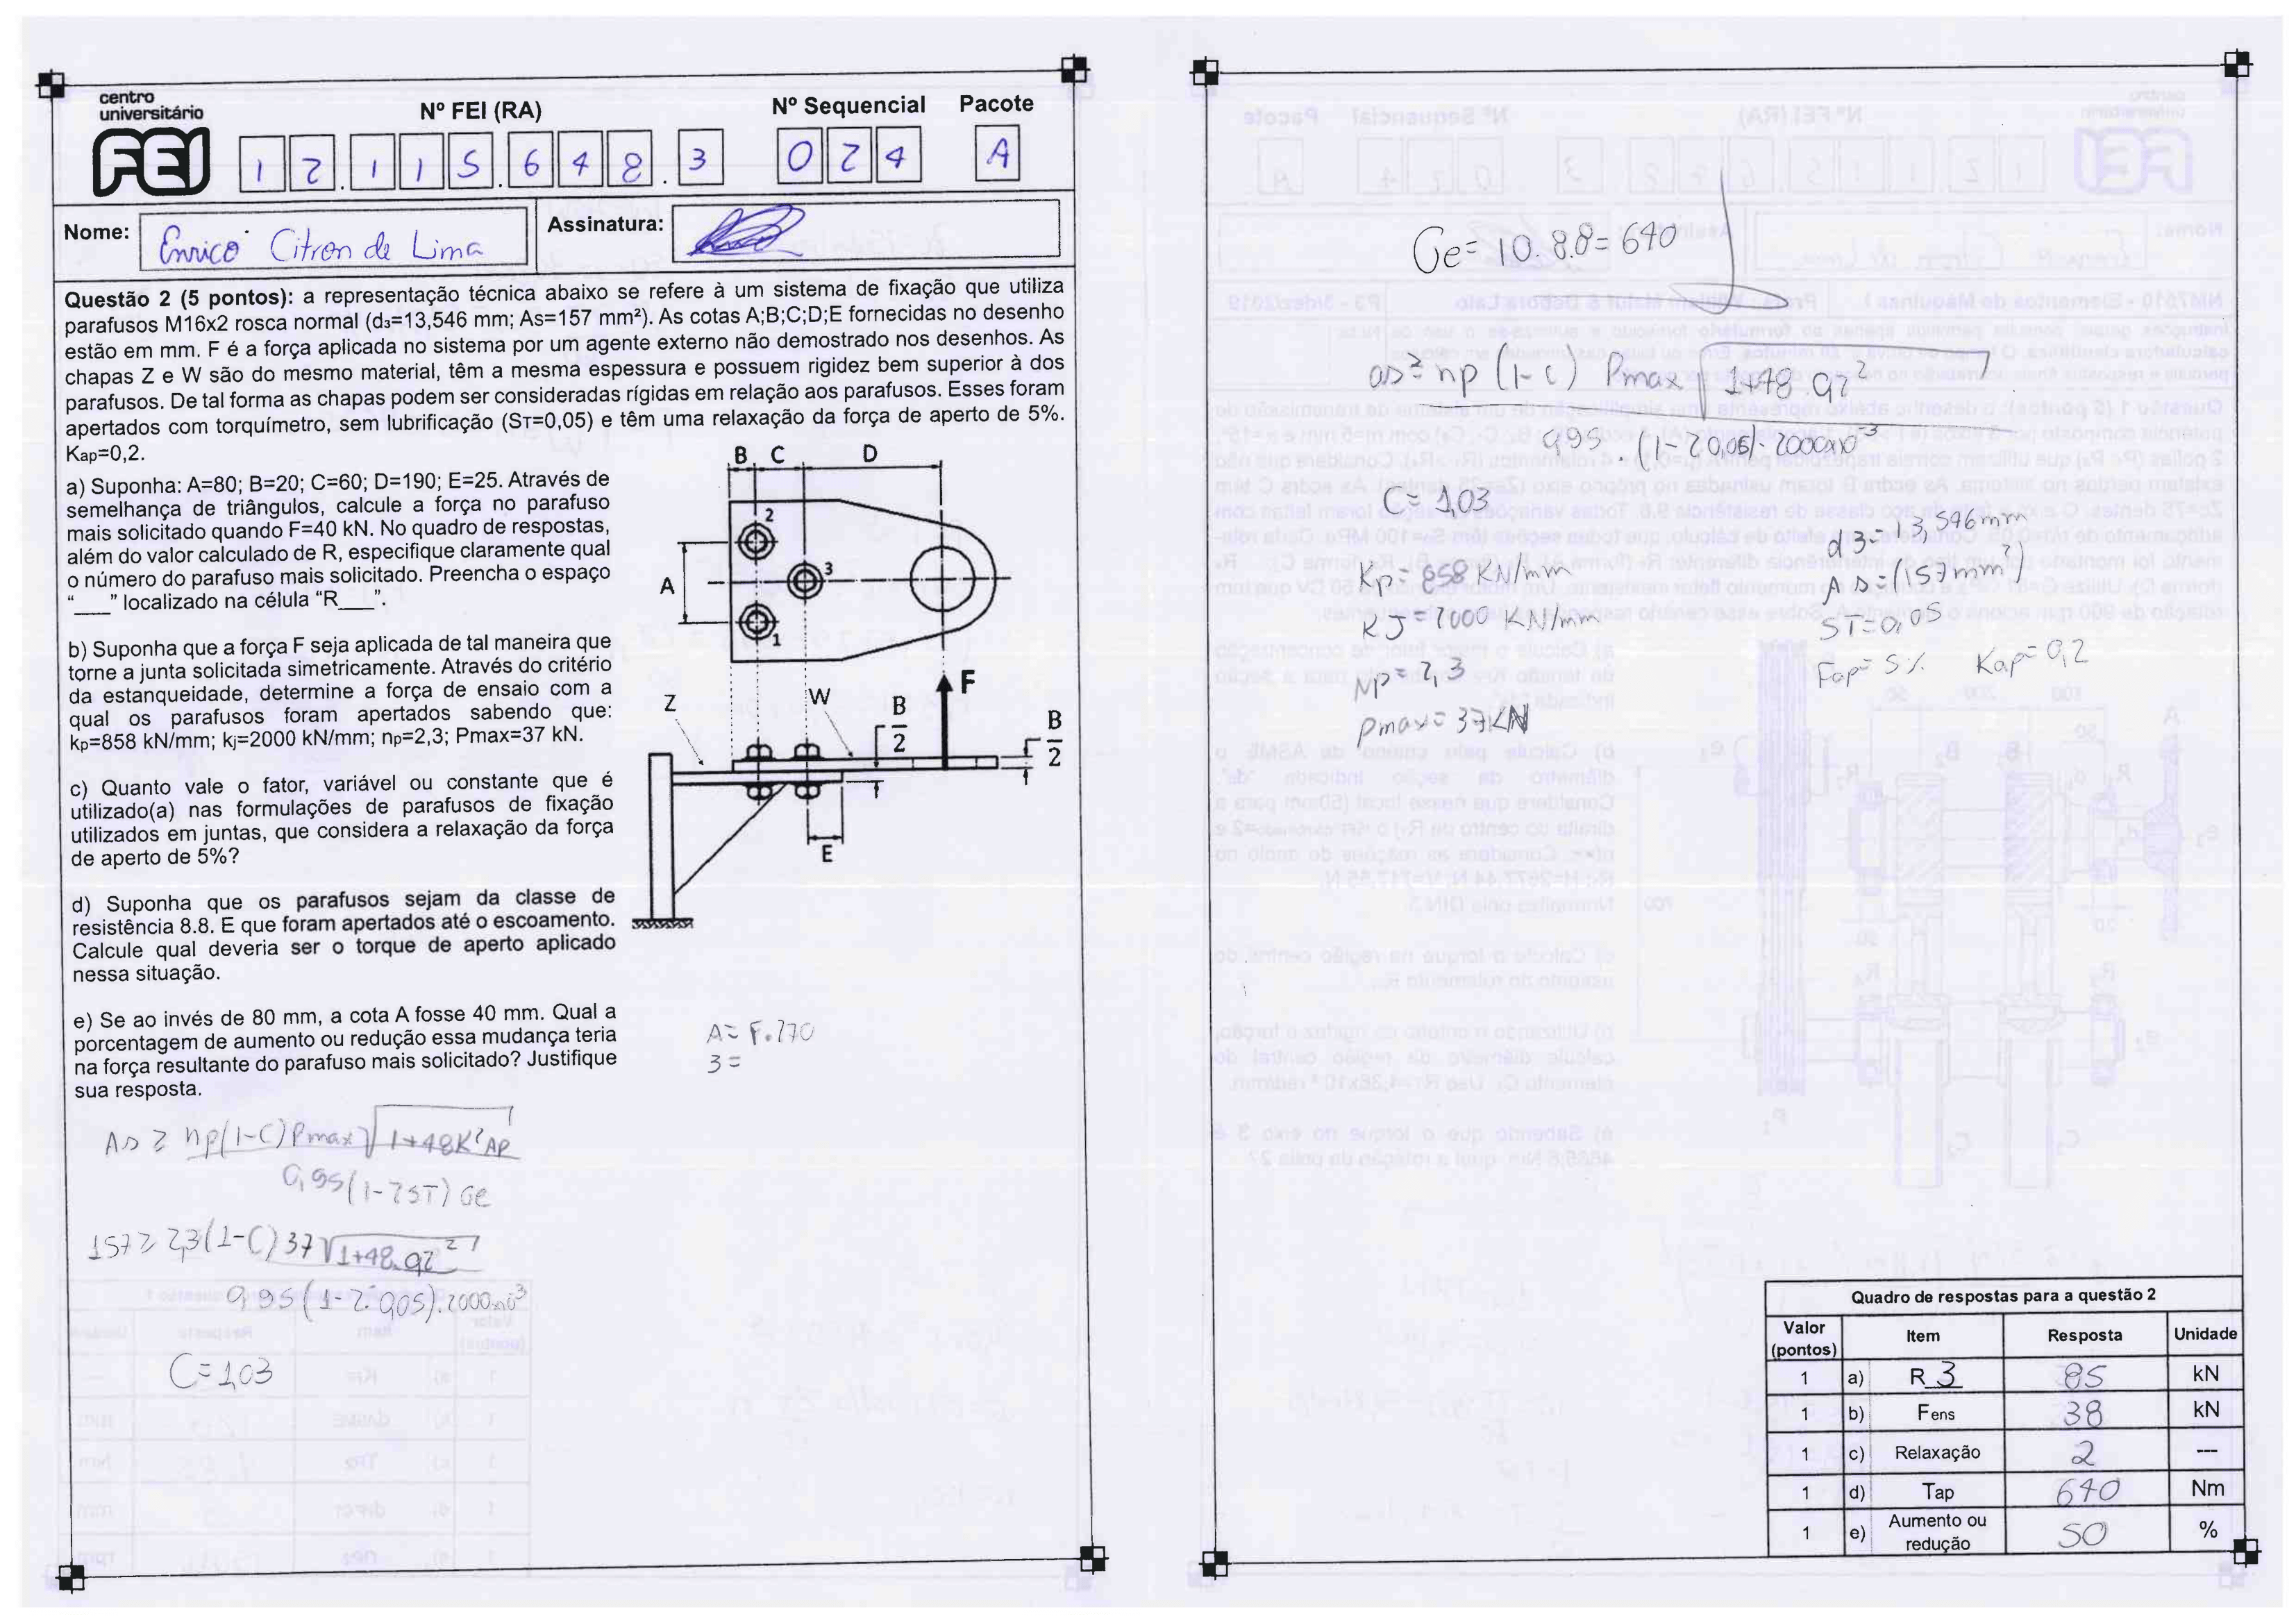 centro
universitário
FEI
Nº FEI (RA)
Nº Sequencial
Pacote
1 2 . 1 1 5 . 6 4 8 . 3
0 2 4
A
Nome: Enrico Citron de Lima
Assinatura:
Questão 2 (5 pontos): a representação técnica abaixo se refere à um sistema de fixação que utiliza
parafusos M16x2 rosca normal (d₃=13,546 mm; As=157 mm²). As cotas A;B;C;D;E fornecidas no desenho
estão em mm. F é a força aplicada no sistema por um agente externo não demostrado nos desenhos. As
chapas Z e W são do mesmo material, têm a mesma espessura e possuem rigidez bem superior à dos
parafusos. De tal forma as chapas podem ser consideradas rígidas em relação aos parafusos. Esses foram
apertados com torquímetro, sem lubrificação (ST=0,05) e têm uma relaxação da força de aperto de 5%.
Kap=0,2.
a) Suponha: A=80; B=20; C=60; D=190; E=25. Através de
semelhança de triângulos, calcule a força no parafuso
mais solicitado quando F=40 kN. No quadro de respostas,
além do valor calculado de R, especifique claramente qual
o número do parafuso mais solicitado. Preencha o espaço
"___" localizado na célula "R___".
b) Suponha que a força F seja aplicada de tal maneira que
torne a junta solicitada simetricamente. Através do critério
da estanqueidade, determine a força de ensaio com a
qual os parafusos foram apertados sabendo que:
kp=858 kN/mm; kj=2000 kN/mm; np=2,3; Pmax=37 kN.
c) Quanto vale o fator, variável ou constante que é
utilizado(a) nas formulações de parafusos de fixação
utilizados em juntas, que considera a relaxação da força
de aperto de 5%?
d) Suponha que os parafusos sejam da classe de
resistência 8.8. E que foram apertados até o escoamento.
Calcule qual deveria ser o torque de aperto aplicado
nessa situação.
e) Se ao invés de 80 mm, a cota A fosse 40 mm. Qual a
porcentagem de aumento ou redução essa mudança teria
na força resultante do parafuso mais solicitado? Justifique
sua resposta.
B C D
2
3
A
1
Z
W
B
2
F
B
2
E
A = F.270
3 =
As ≥ np(1-C)Pmax √1+48K²AP
0,95(1-2ST) Ge
157 ≥ 2,3(1-C)37 √1+48.0,2²
0,95(1-2.0,05).2000x10³
C=1,03
Ge= 10.8.8= 640
as ≥ np (1-c) Pmax √1+48.0,2²
0,95.(1-20,05).2000x10³
C= 1,03
Kp= 858 KN/mm
KJ= 2000 KN/mm
Np= 2,3
Pmax= 37KN
d3= 13,546mm
As= (157mm²)
ST=0,05
Fap= 5% Kap= 0,2
Quadro de respostas para a questão 2
Valor (pontos) Item Resposta Unidade
1 a) R 3 85 kN
1 b) Fens 38 kN
1 c) Relaxação 2 ---
1 d) Tap 640 Nm
1 e) Aumento ou redução 50 %